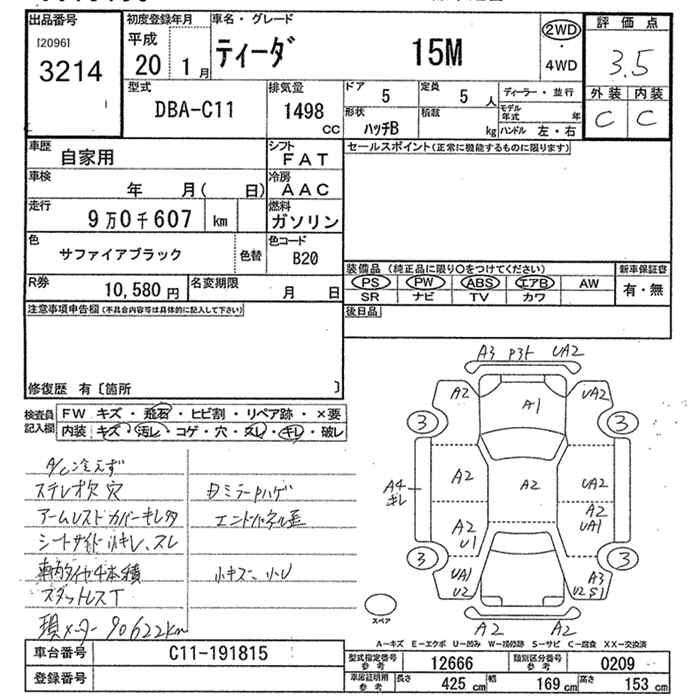 出品番号 初度登録年月 車名・グレード 評価点
[2096] 平成 ティーダ 15M 2WD・4WD 3.5
3214 20 1月
型式 排気量 ドア 5 定員 5人 ディーラー・並行 外装 内装
DBA-C11 1498 CC 形状 ハッチB 積載 kg モデル年式 年 C C
ハンドル 左・右
車歴 自家用 シフト FAT セールスポイント(正常に機能するものに限ります)
車検 年 月( 日) 冷房 AAC
走行 9万0千607 km 燃料 ガソリン
色 サファイアブラック 色替 色コード B20
装備品(純正品に限り○をつけてください) 新車保証書
R券 10,580円 名変期限 月 日 PS PW ABS エアB AW 有・無
SR ナビ TV カワ
注意事項申告欄(不具合内容等は具体的に記入して下さい) 後日品
修復歴 有〔箇所 〕
検査員記入欄 FW キズ・飛石・ヒビ割・リペア跡・×要
内装 キズ・汚レ・コゲ・穴・スレ・キレ・破レ
A/C冷えず
ステレオ欠 穴 ミラーハゲ
アームレストカバーキレ
シートサイド小キレ、スレ
車内タイヤ4本積 小キズ、小凹
スタッドレスT
現メーター90622km
A3 UA2
A2 A1 UA2
3 3
A4 キレ A2 A2 UA2
A2 U1 A2 UA1
3 3
UA1 U2 A3 U2 S1
スペア A2 A2
A-キズ E-エクボ U-凹み W-補修跡 S-サビ C-腐食 XX-交換済
車台番号 C11-191815 型式指定番号 参考 12666 類別区分番号 参考 0209
登録番号 車庫証明用 参考 長さ 425 cm 幅 169 cm 高さ 153 cm